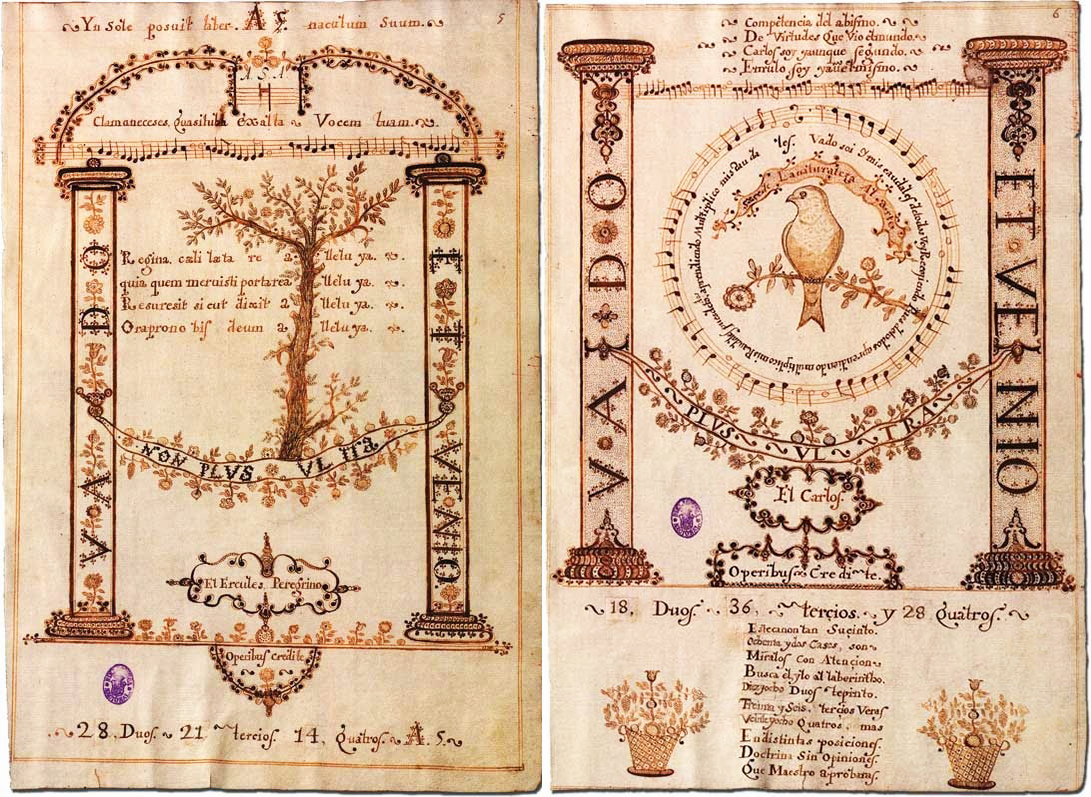 5
Yn Sole posuit taber A 5 naculum Suum.
A. 5. A
Clamaneceses, quasituba exalta Vocem tuam.
VADO
ET VENIO
Regina cæli læta re a lleluya.
quia quem meruisti portarea lleluya.
Resuresit sicut dixit a lleluya.
Oraprono bis deum a lleluya.
NON PLVS VLtra
El Ercules Peregrino
Operibus credite
28. Duos 21 tercios 14, quatros A. 5.
6
Competencia del abismo.
De Virtudes que Vio el mundo.
Carlos soy yaunque segundo.
Emulo soy
VADO
ET VENIO
Vado soi y mis
La naturaleza Al Arte
PLVS VLTRA
El Carlos
Operibus Credite.
18, Duos, 36, tercios y 28 quatros.
Este canon tan Sucinto.
Ochenta y dos Casos, son
Miralos Con Atencion
Busca el ylo al laberintho.
Diez yocho Duos tepinto.
Treinta y Seis, tercios Veras
Veinte yocho Quatros, mas
En distintas posiciones.
Doctrina Sin Opiniones.
Que Maestro aprobaras.